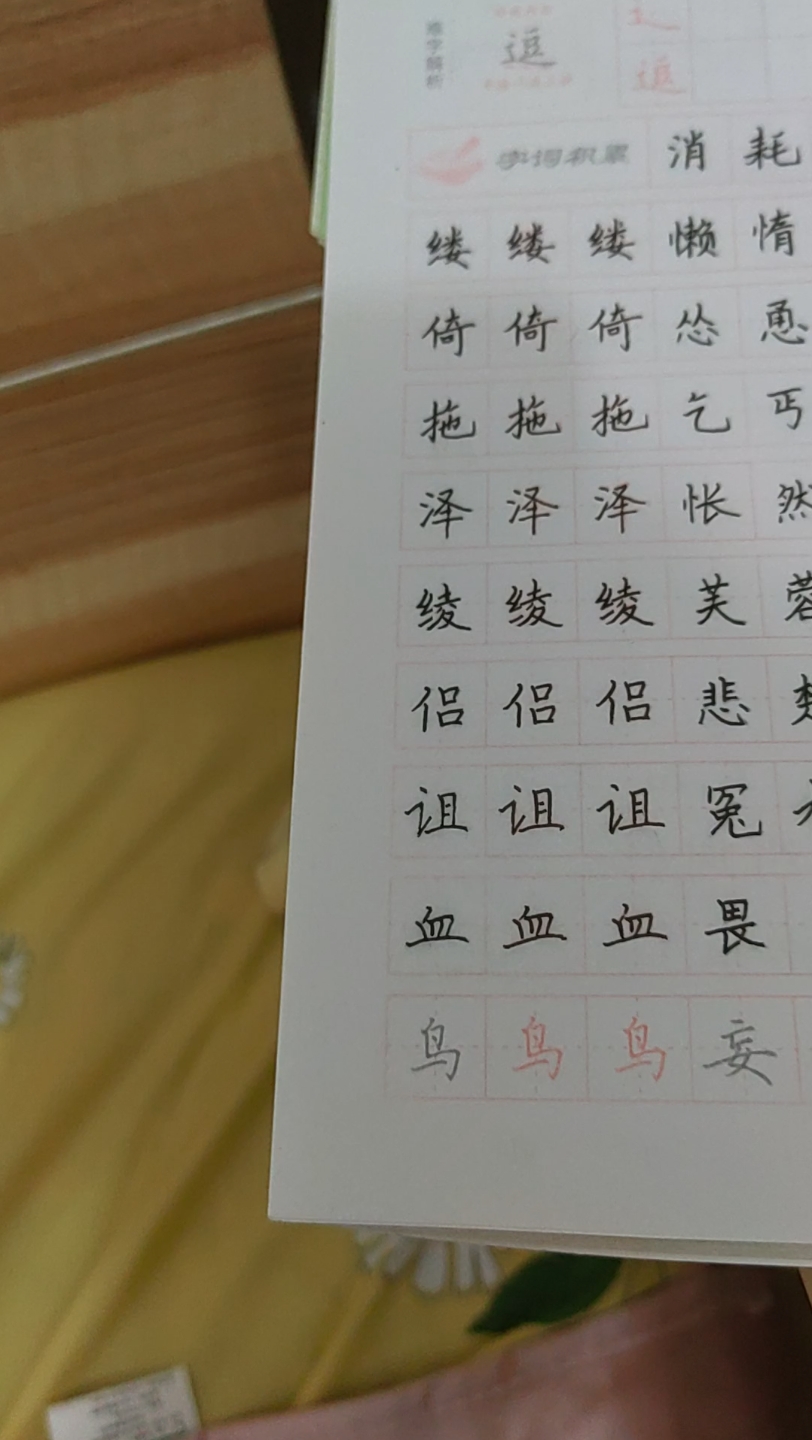 难字解析
逗
逗
字词积累 消 耗
缕 缕 缕 懒 惰
倚 倚 倚 怂 恿
拖 拖 拖 乞 丐
泽 泽 泽 怅 然
绫 绫 绫 芙 蓉
侣 侣 侣 悲
诅 诅 诅 冤
血 血 血 畏
鸟 鸟 鸟 妄